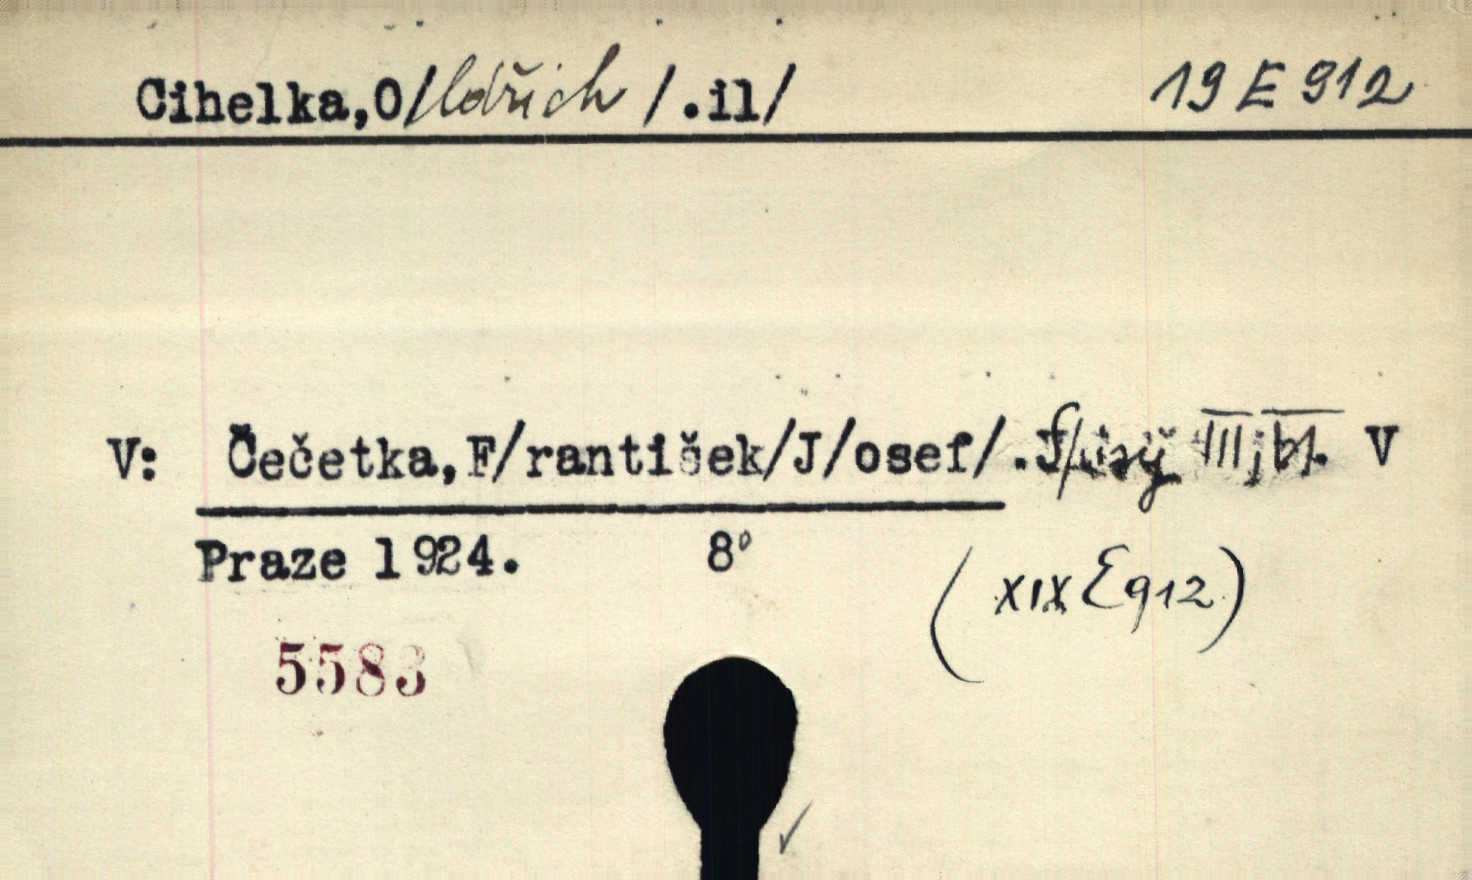 Cihelka,O/ldřich/.il/ 19 E 912
V: Čečetka,F/rantišek/J/osef/. V
Praze 1924. 8°
(XIX E 912)
5583